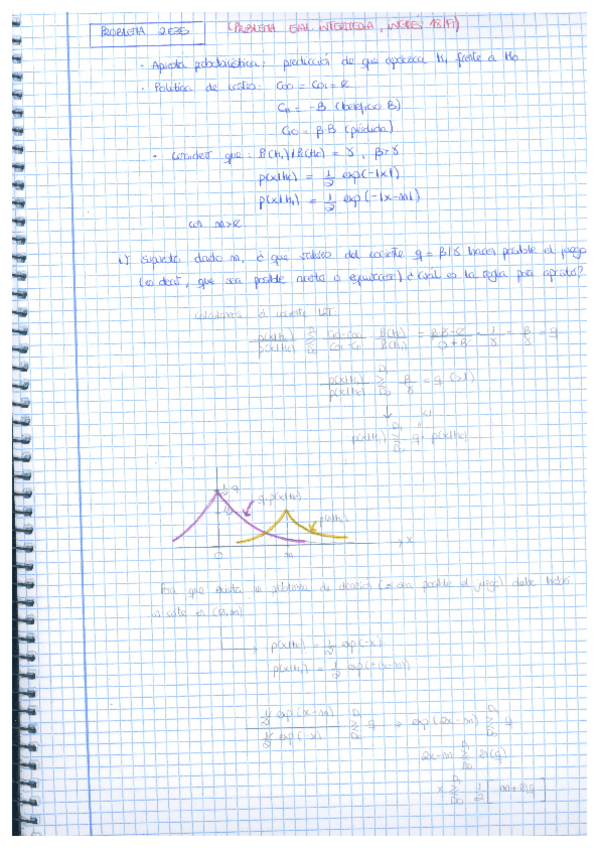 PROBLEMA 2.E35 (PROBLEMA EVAL. INTERMEDIA, INGLÉS, 18/19)
· Apuesta probabilística: predicción de que aparezca H₁ frente a H₀
· Política de costes: C₀₀ = C₀₁ = 0
C₁₁ = -B (beneficio B)
C₁₀ = β·B (pérdida)
· Considerar que: P(H₁)/P(H₀) = γ, β>γ
p(x|H₀) = 1/2 exp(-|x|)
p(x|H₁) = 1/2 exp(-|x-m|)
con m>0
1) Supuesto dado m, ¿qué valores del cociente q = β/γ hacen posible el juego
(es decir, que sea posible acertar o equivocarse) ¿cuál es la regla para apostar?
Calculamos el cociente LRT:
p(x|H₁) / p(x|H₀) ≷ = β/γ = q
p(x|H₁) / p(x|H₀) ≷ β/γ = q (>1)
p(x|H₁) ≷ q· p(x|H₀)
q·p(x|H₀)
p(x|H₁)
0 m x
Para que exista un problema de decisión (= sea posible el juego) debe haber
un corte en (0,m)
p(x|H₀) = 1/2 exp(-x)
p(x|H₁) = 1/2 exp(+(x-m))
1/2 exp(x-m) / 1/2 exp(-x) ≷ q ⇒ exp(2x-m) ≷ q
2x-m ≷ ln(q)
x ≷ 1/2 [m + ln q]